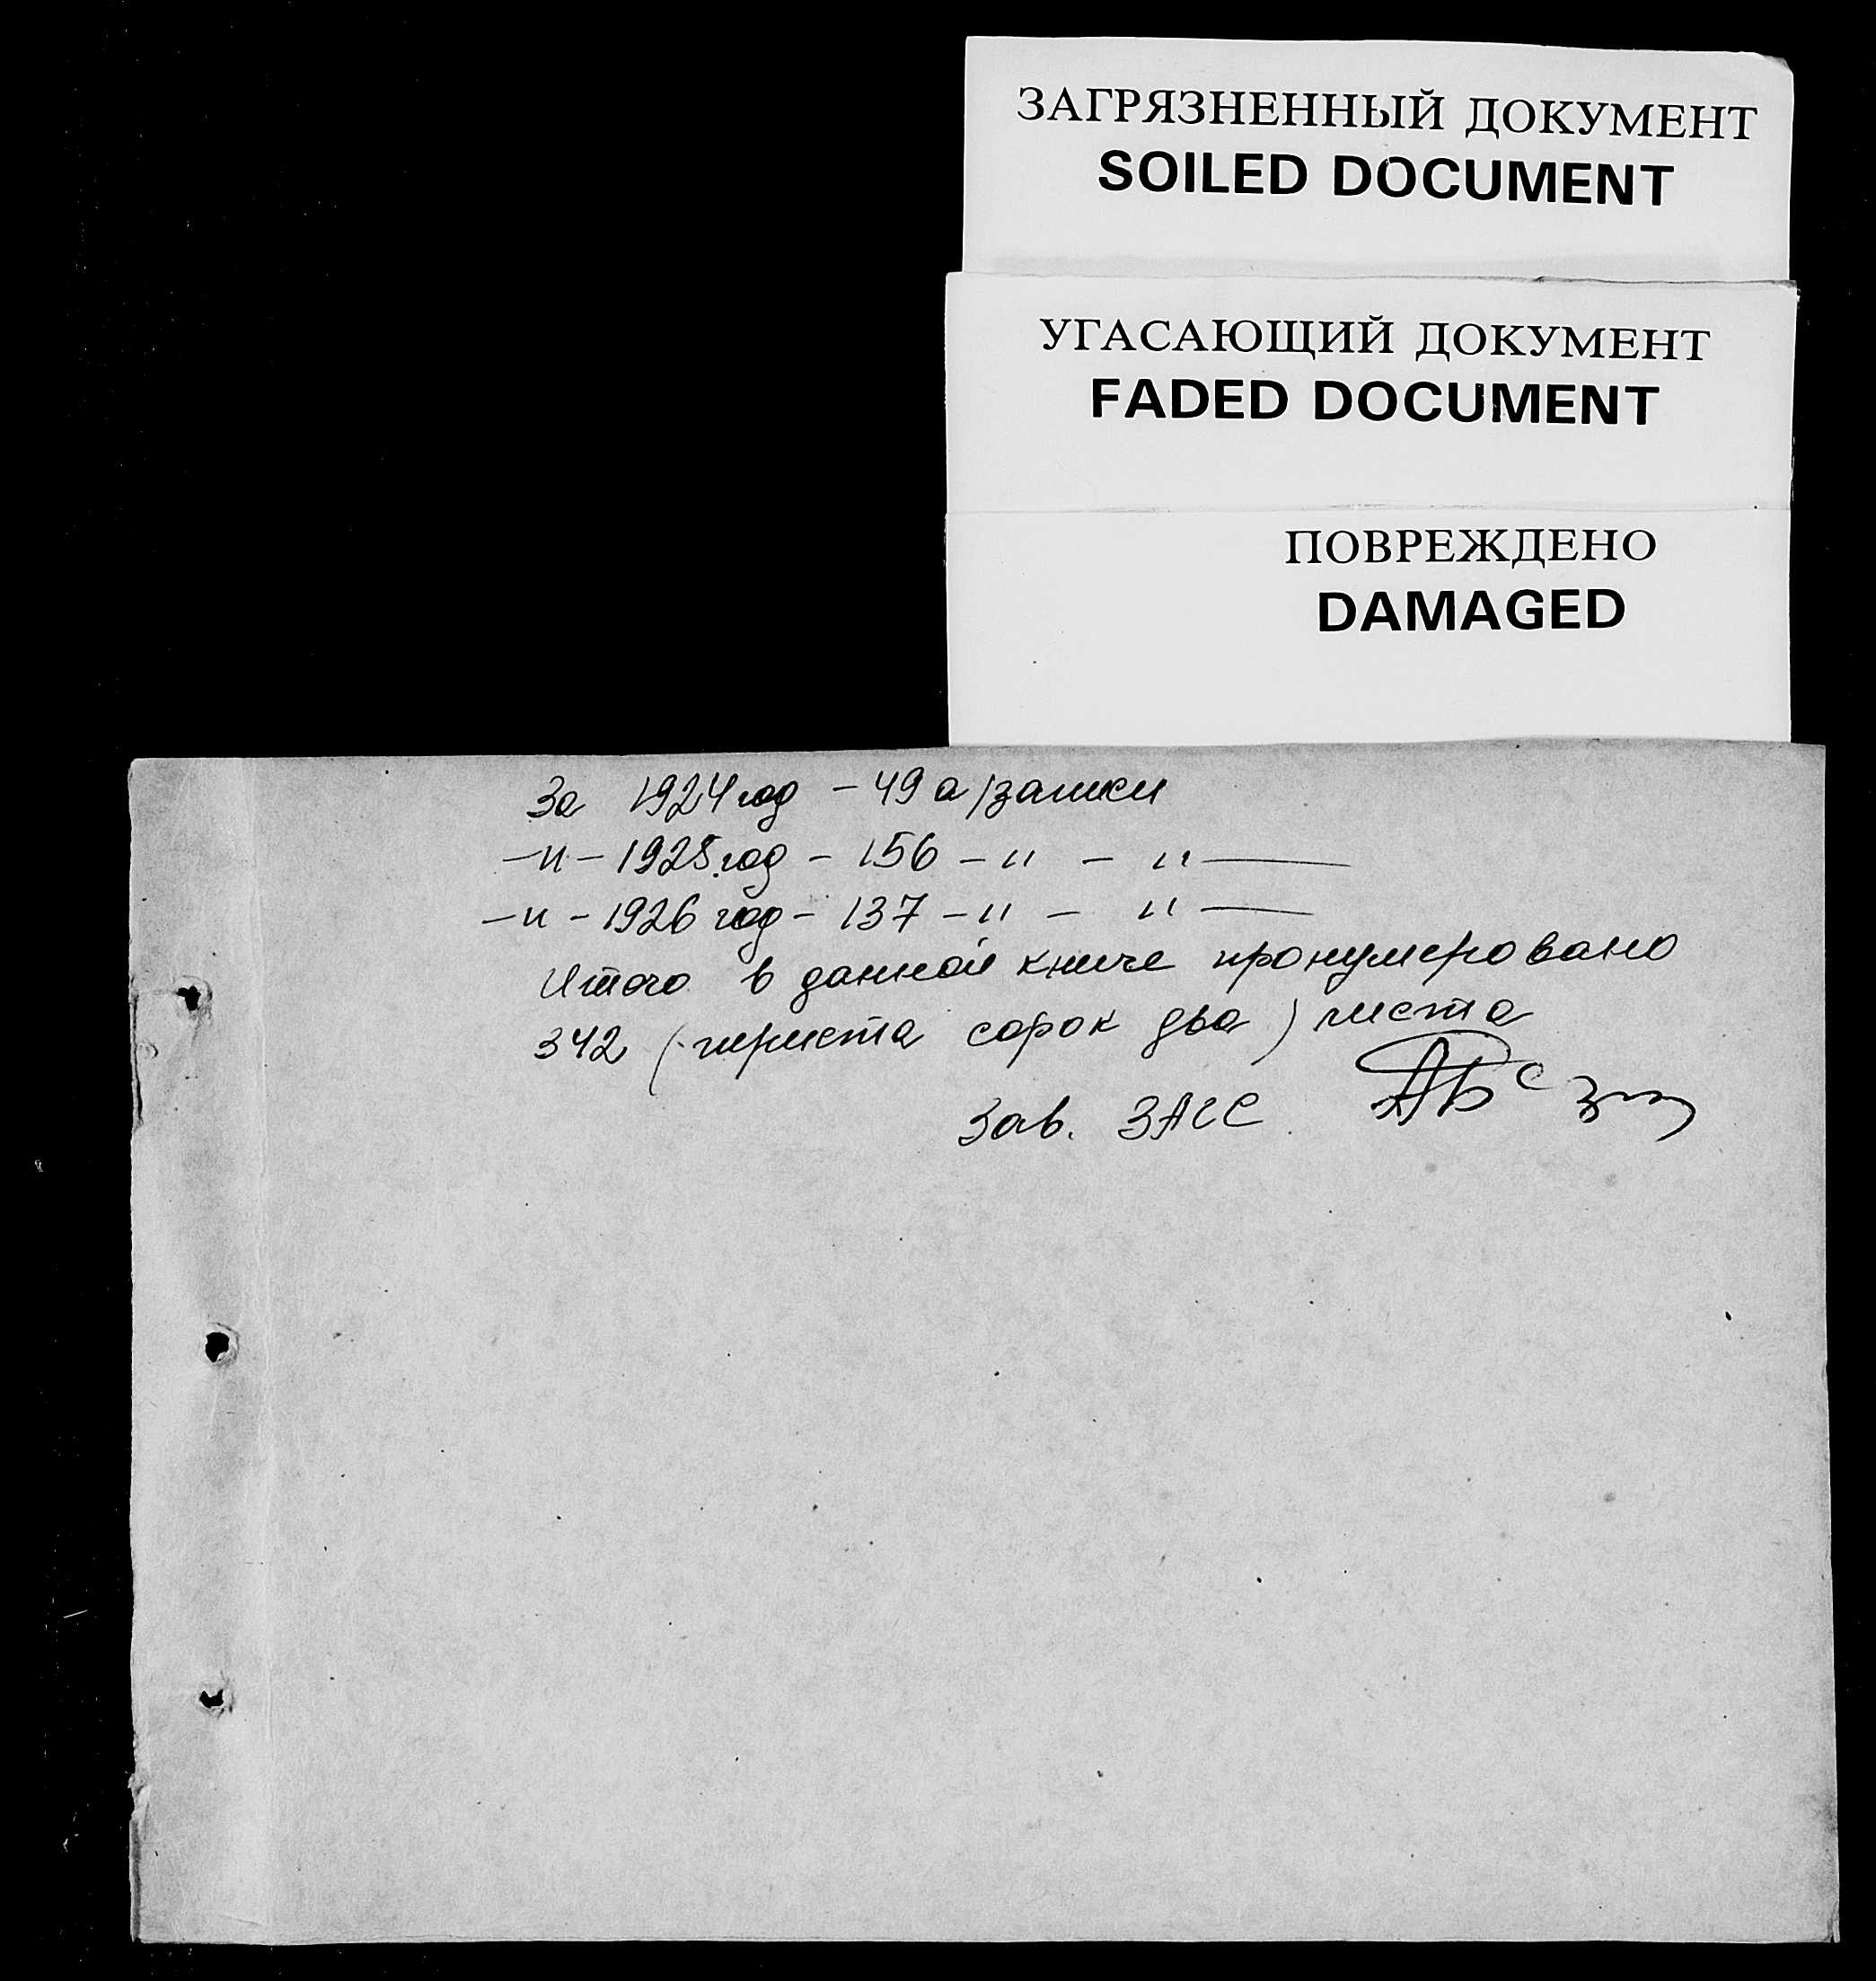 ЗАГРЯЗНЕННЫЙ ДОКУМЕНТ
SOILED DOCUMENT
УГАСАЮЩИЙ ДОКУМЕНТ
FADED DOCUMENT
ПОВРЕЖДЕНО
DAMAGED
За 1924 год - 49 а/записи
-„- 1925 год - 156 -„- „-
-„- 1926 год - 137 -„- „-
Итого в данной книге пронумеровано
342 (триста сорок два) листа
Зав. ЗАГС